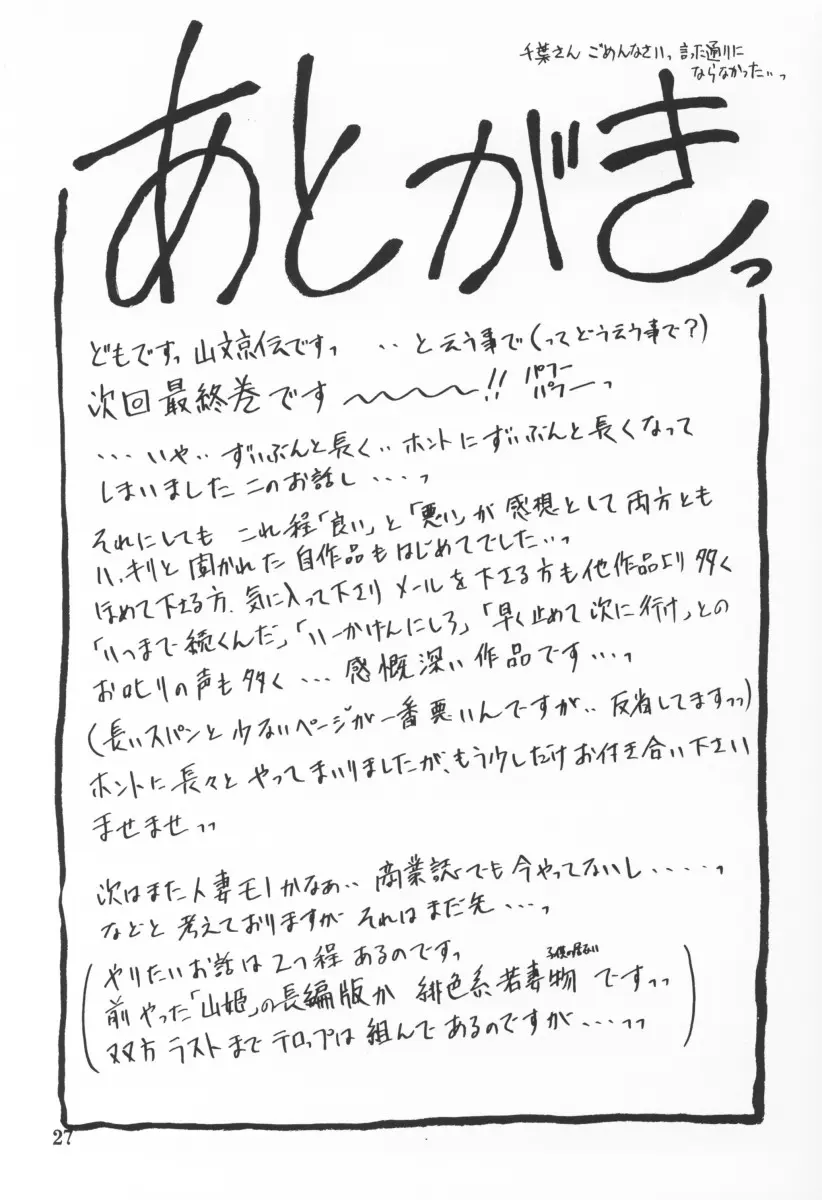 千葉さん ごめんなさいっ 言った通りに
ならなかった‥っ
あとがきっ
どもですっ 山文京伝ですっ ‥と云う事で(ってどう云う事で?)
次回最終巻です〜〜〜〜!! パフーパフーっ
‥‥いや‥ずいぶんと長く‥ホントにずいぶんと長くなって
しまいましたこのお話し‥‥っ
それにしても これ程「良い」と「悪い」が感想として両方とも
ハッキリと聞かれた自作品もはじめてでした‥っ
ほめて下さる方、気に入って下さり メールを下さる方も他作品より多く
「いつまで続くんだ」「いーかげんにしろ」「早く止めて次に行け」との
お叱りの声も多く‥‥感慨深い作品です‥‥っ
(長いスパンと少ないページが一番悪いんですが‥反省してますっっ)
ホントに長々とやってまいりましたが、もう少しだけお付き合い下さい
ませませっっ
次はまた人妻モノかなぁ‥商業誌でも今やってないし‥‥‥っ
などと考えておりますが それはまだ先‥‥っ
(やりたいお話は2つ程あるのですっ
子供の居ない
前やった「山姫」の長編版か 緋色系若妻物ですっっ
双方ラストまでテロップは組んであるのですが‥‥っっ)
27